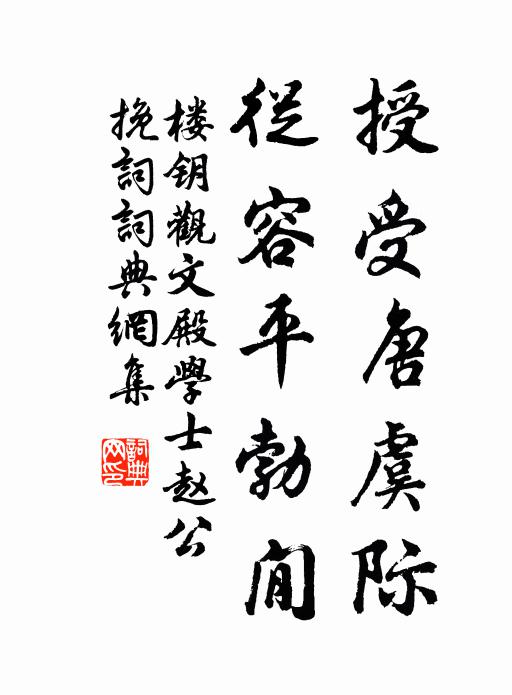 授受唐虞际
從容平勃閒
楼钥觀文殿學士赵公
挽詞詞典網集
詞典网印